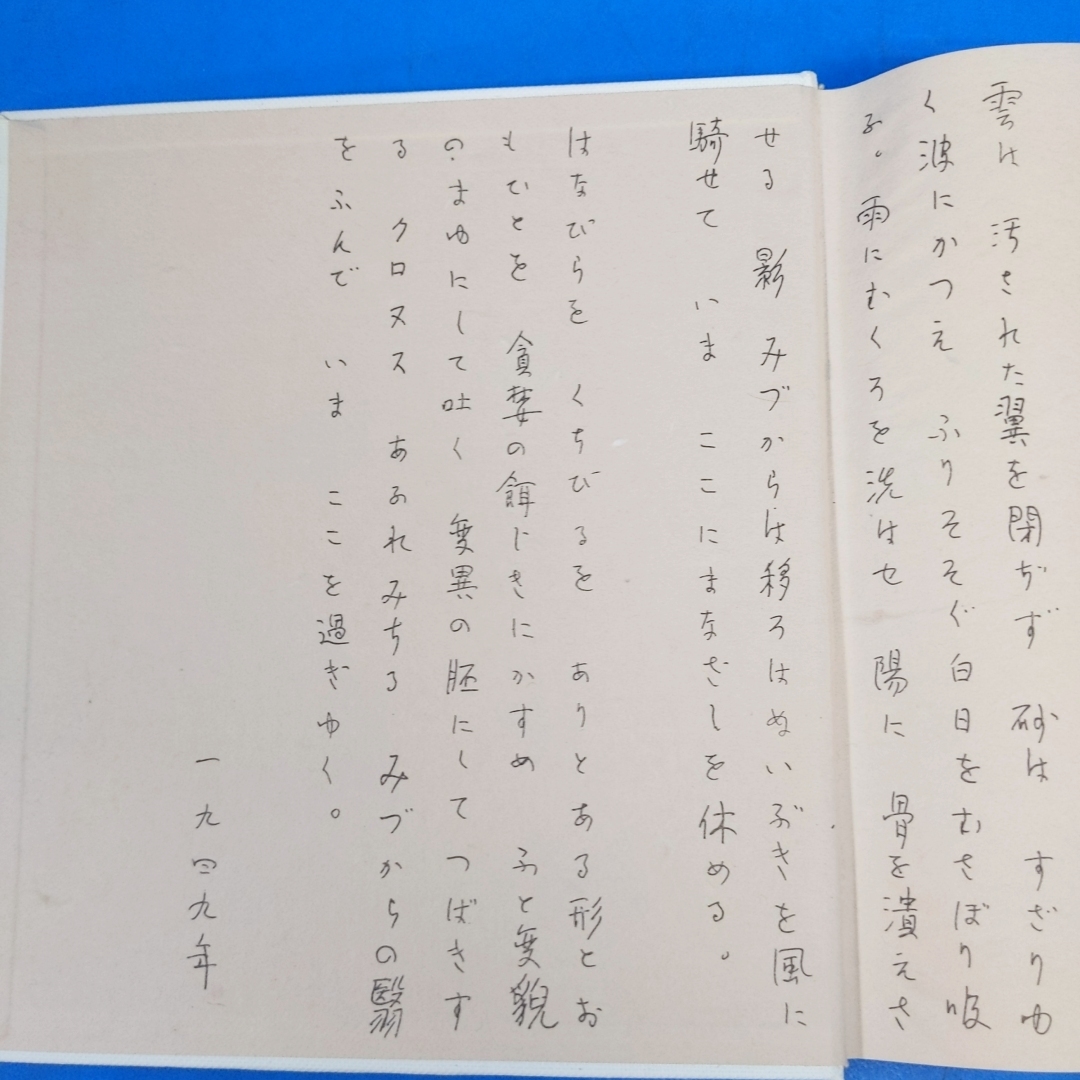 雲は　汚された翼を閉ぢず　砂は　すざりゆ
く波にかつえ　ふりそそぐ白日をむさぼり吸
ふ。雨にむくろを洗はせ　陽に　骨を潰えさ
せる　影　みづからは移ろはぬいぶきを風に
騎せて　いま　ここにまなざしを休める。
はなびらを　くちびるを　ありとある形とお
もひとを　貪婪の餌じきにかすめ　ふと変貌
のまゆにして吐く　変異の胚にしてつばきす
る　クロヌス　あふれみちる　みづからの翳
をふんで　いま　ここを過ぎゆく。
一九四九年